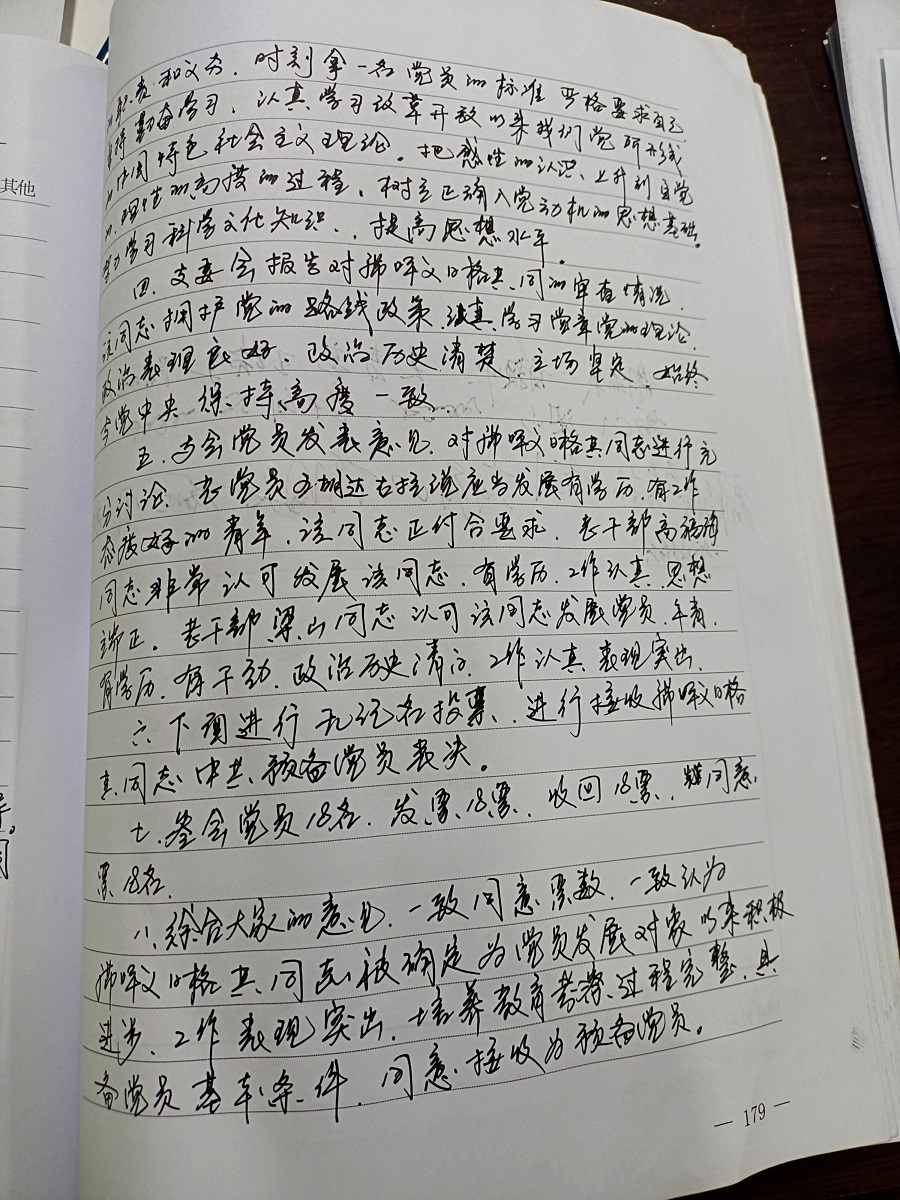 其他
职责和义务，时刻拿一名党员的标准严格要求自己
坚持勤奋学习，认真学习改革开放以来我们党所形成
的中国特色社会主义理论。把感性的认识，上升到自觉
的、理性的高度的过程，树立正确入党动机的思想基础。
努力学习科学文化知识，提高思想水平。
四、支委会报告对 同志的审查情况，
该同志拥护党的路线政策，认真学习党章党的理论，
政治表现良好，政治历史清楚，立场坚定，始终
与党中央保持高度一致。
五、与会党员发表意见，对 日格其同志进行充
分讨论，老党员 说应当发展有学历，有工作
态度好的青年，该同志正付合要求，老干部高
同志非常认可发展该同志，有学历，工作认真，思想
端正。老干部梁山同志认可该同志发展党员，年青，
有学历，有干劲，政治历史清白，工作认真，表现突出，
六、下项进行无记名投票，进行接收 日格
其同志中共预备党员表决。
七、参会党员18名，发票18票，收回18票，赞同意
票18名。
八、综合大家的意见，一致同意票数，一致认为
日格其同志被确定为党员发展对象以来积极
进步，工作表现突出，培养教育考察过程完整，具
备党员基本条件，同意接收为预备党员。
— 179 —